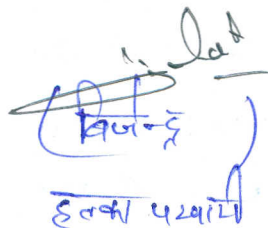 (बिजेन्द्र)
हल्का पटवारी